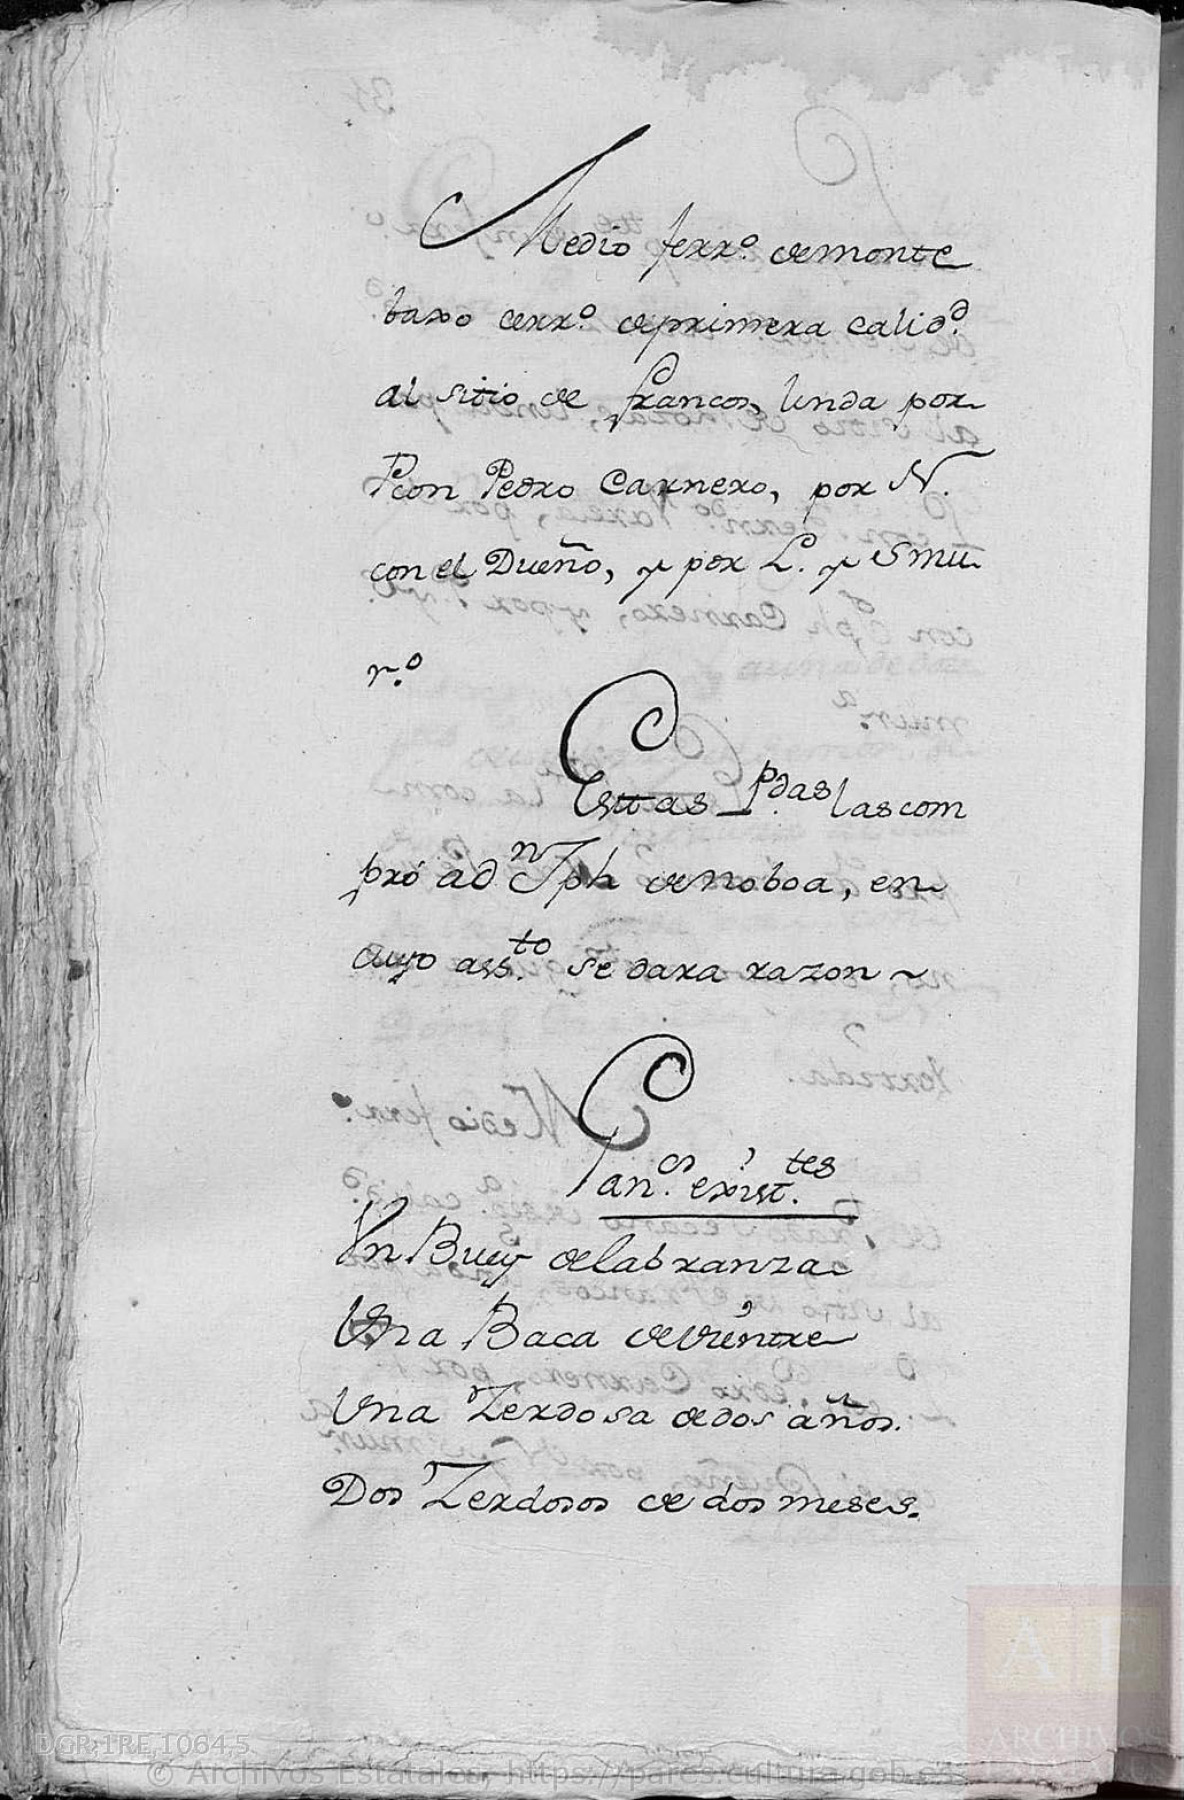 Medio ferr.º de monte
baxo cerr.º de primera calid.d
al sitio de francos, linda por
P con Pedro Carnero, por N.
con el Dueño, y por L. y S mu
r.º
Esttas P.das las com
pró a d.n Jph de noboa, en
cuyo ass.to se dara razon ~
Gan.os exist.tes
Vn Buey de labranza
Vna Baca de vientre
Vna Zerdosa de dos años.
Dos Zerdosos de dos meses.
DGR,1RE,1064,5
© Archivos Estatales, https://pares.cultura.gob.es
AE
ARCHIVOS